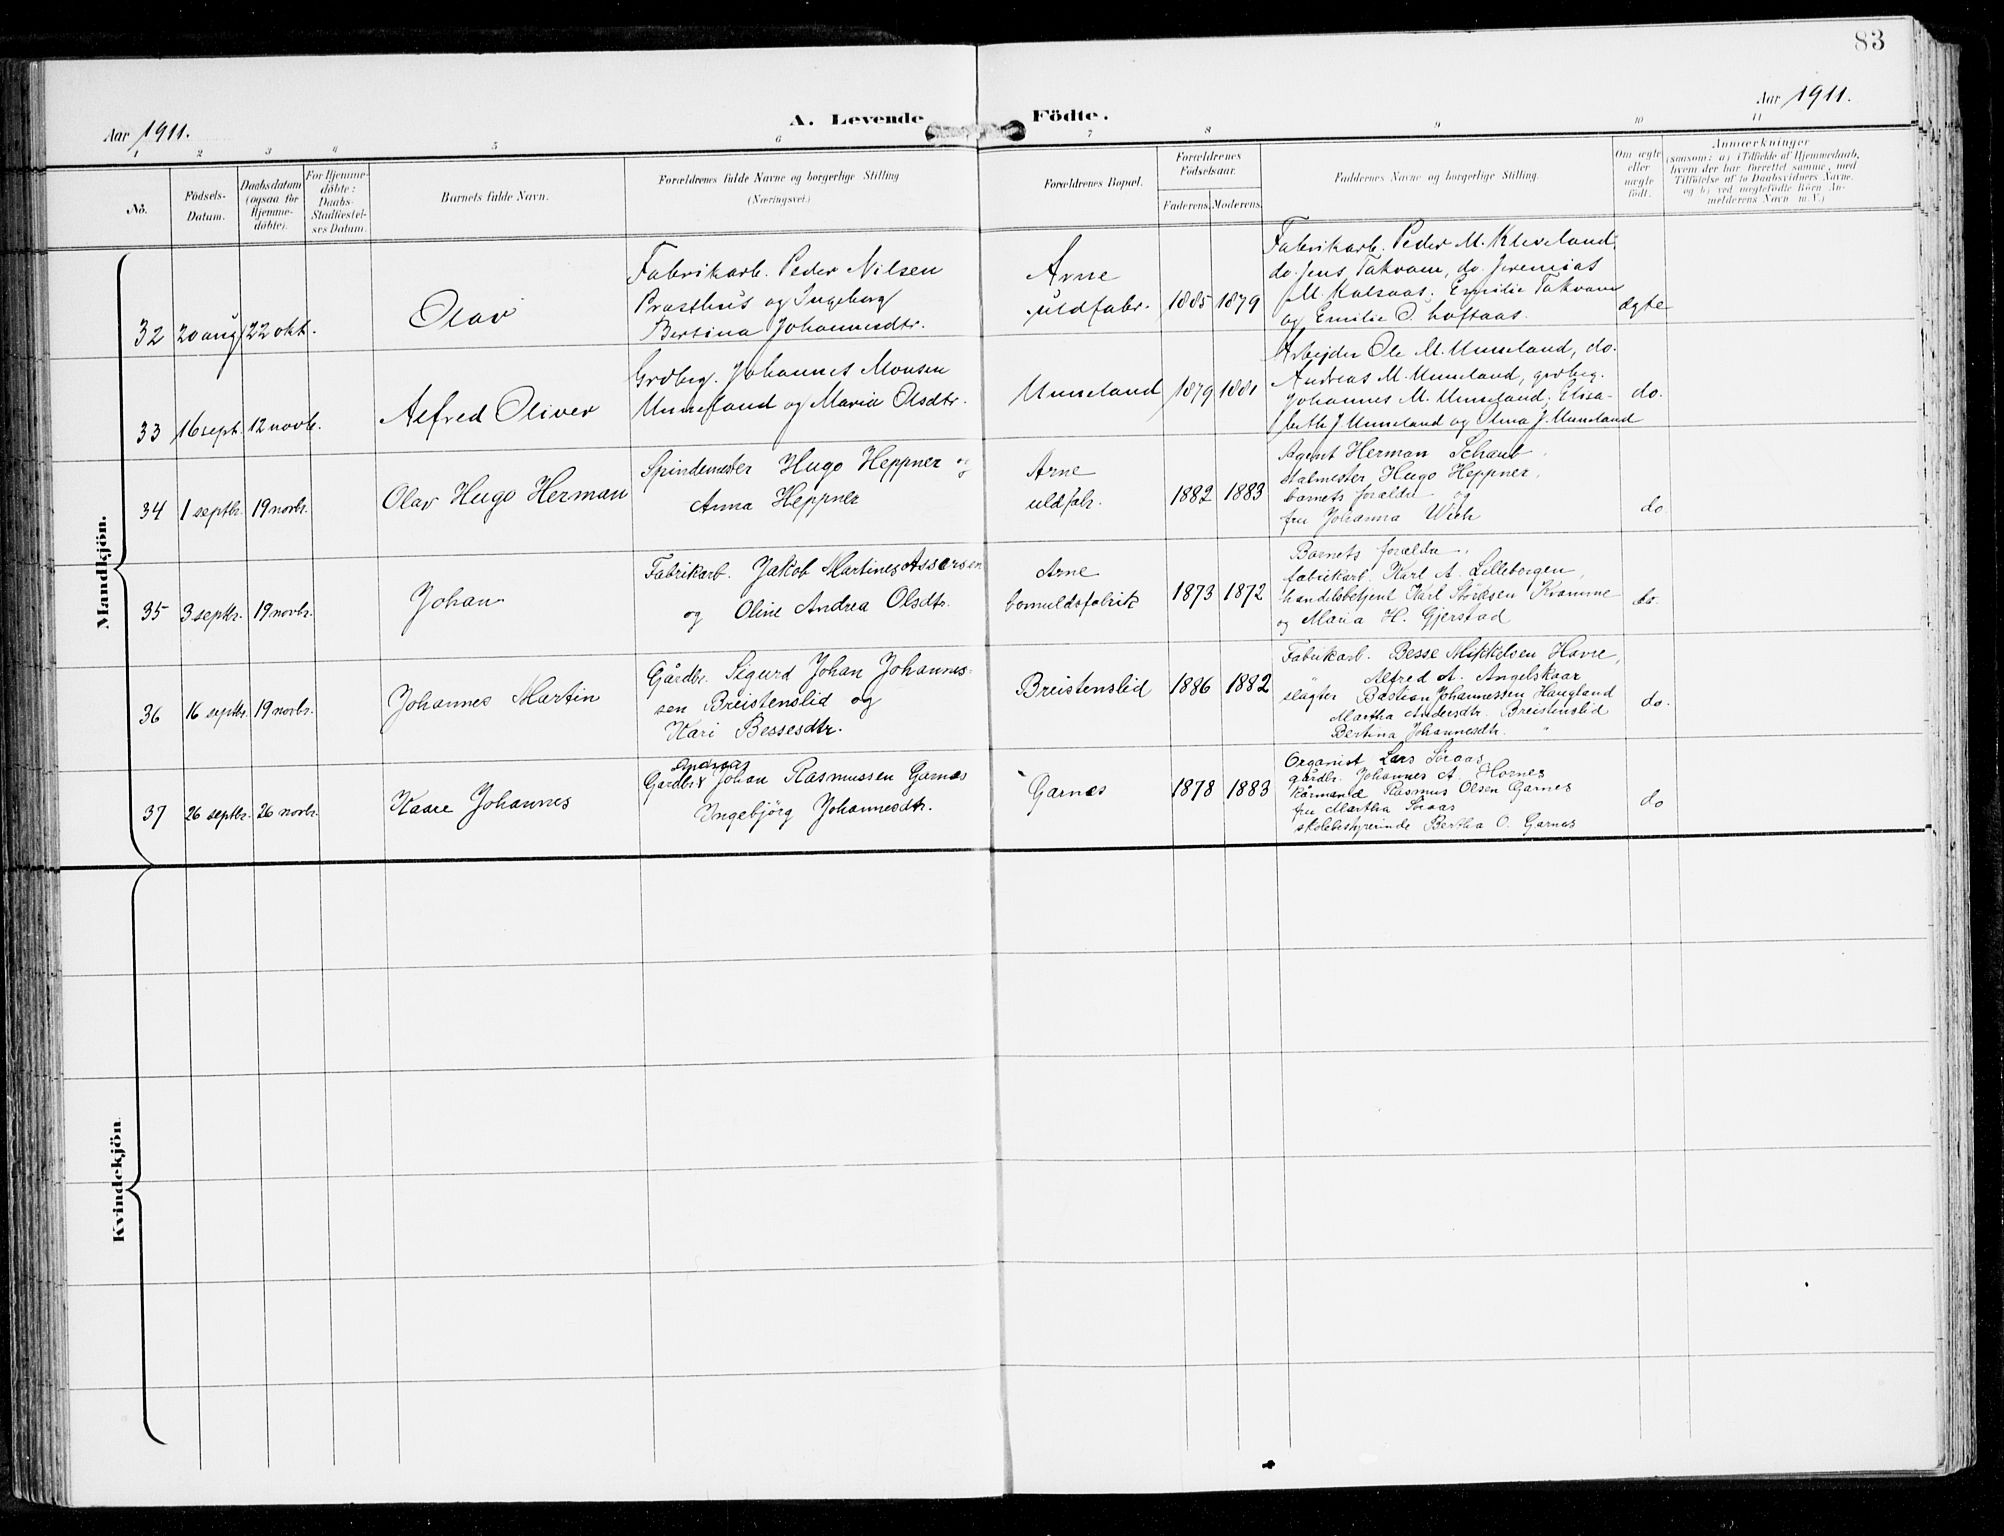 83
Aar 1911.
A. Levende Födte.
Aar 1911.
1 2 3 4 5 6 7 8 9 10 11
No.
Födsels-
Datum.
Daabsdatum
(ogsaa for
Hjemme-
döbte).
For Hjemme-
döbte:
Daabs-
Stadfæstel-
ses Datum.
Barnets fulde Navn.
Forældrenes fulde Navne og borgerlige Stilling
(Næringsvei.)
Forældrenes Bopæl.
Forældrenes
Födselsaar.
Faderens. Moderens.
Faddernes Navne og borgerlige Stilling.
Om ægte
eller
uægte
födt.
Anmærkninger
(saasom: a) i Tilfælde af Hjemmedaab,
hvem der har forrettet samme, med
Tilföielse af to Daabsvidners Navne,
og b) ved uegtefödte Börn An-
melderens Navn m. V.)
Mandkjön.
32 20 aug 22 okt.
Olav
Fabrikarb. Peder Nilsen
Prasthus og Ingeborg
Bertina Johannesdtr.
Arne
uldfabr.
1885 1879
Fabrikarb. Peder M. Kleveland,
do. Jens Takvam, do. Jeremias
M. Kalsaas. Emilie Takvam
og Emilie O. Loftaas.
ægte
33 16 sept. 12 novb.
Alfred Oliver
Grdbrg. Johannes Monsen
Unneland og Maria Olsdtr.
Unneland
1879 1881
Arbejder Ole M. Unneland, do.
Andreas M. Unneland, grdbrg.
Johannes M. Unneland, Elisa-
beth J. Unneland og Olina J. Unneland
do.
34 1 septbr. 19 novbr.
Olav Hugo Herman
Spindemester Hugo Heppner og
Anna Heppner
Arne
uldfabr.
1882 1883
Agent Herman Schaub,
stalmester Hugo Heppner,
barnets forældre og
fru Johanna Wich
do
35 3 septbr. 19 novbr.
Johan
Fabrikarb. Jakob Martines Assersen
og Oline Andrea Olsdtr.
Arne
bomuldsfabrik
1873 1872
Barnets forældre,
fabrikarb. Karl A. Lilleborgen,
handelsbetjent Karl Störksen Kvamme
og Maria H. Gjerstad
do.
36 16 septbr. 19 novbr.
Johannes Martin
Gårdbr. Sigurd Johan Johannes-
sen Breistenslid og
Kari Bessesdtr.
Breistenslid
1886 1882
Fabrikarb. Besse Mikkelsen Havre,
Alfred A. Angelskaar
slagter Bastian Johannessen Haugland
Martha Andersdtr. Breistenslid
Bertina Johannesdtr. "
do.
37 26 septbr. 26 novbr.
Kaare Johannes
Andreas
Gårdbr. Johan Rasmussen Garnes
Ingebjörg Johannesdtr.
Garnes
1878 1883
Organist Lars Söraas
gårdbr. Johannes A. Hornes
Rasmus Olsen Garnes
fru Martha Söraas
skolebestyrerinde Bertha O. Garnes
do
Kvindekjön.